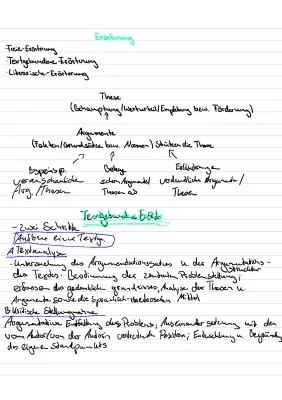 Erörterung
Freie-Erörterung
·Textgebundene-Erörterung
·Literarische-Erörterung
These
(Behauptung/Werturteil/Empfehlung bzw. Forderung)
Argumente
(Fakten/Grundsätze bzw. Normen) Stützen die These
Beispiele Belege Erläuterungen
veranschauliche sichern Argumente/ verdeutlichen Argumente/
Arg./Thesen Thesen ab Thesen
Textgebundene Erört.
- Zwei Schritte
Aufbau eines Textes
A Textanalyse
·Untersuchung des Argumentationsansatzes u. der Argumentations-
struktur
des Textes: Bestimmung der zentralen Problemstellung;
erfassen des gedanklich grundrisses, Analyse der Thesen u.
Argumente sowie der sprachlich-rhetorischen Mittel
B Kritische Stellungnahme
Argumentative Entfaltung des Problems, Auseinandersetzung mit der
vom Autor/von der Autorin vertretenen Position; Entwicklung u. Begründung
des eigenen Standpunkts